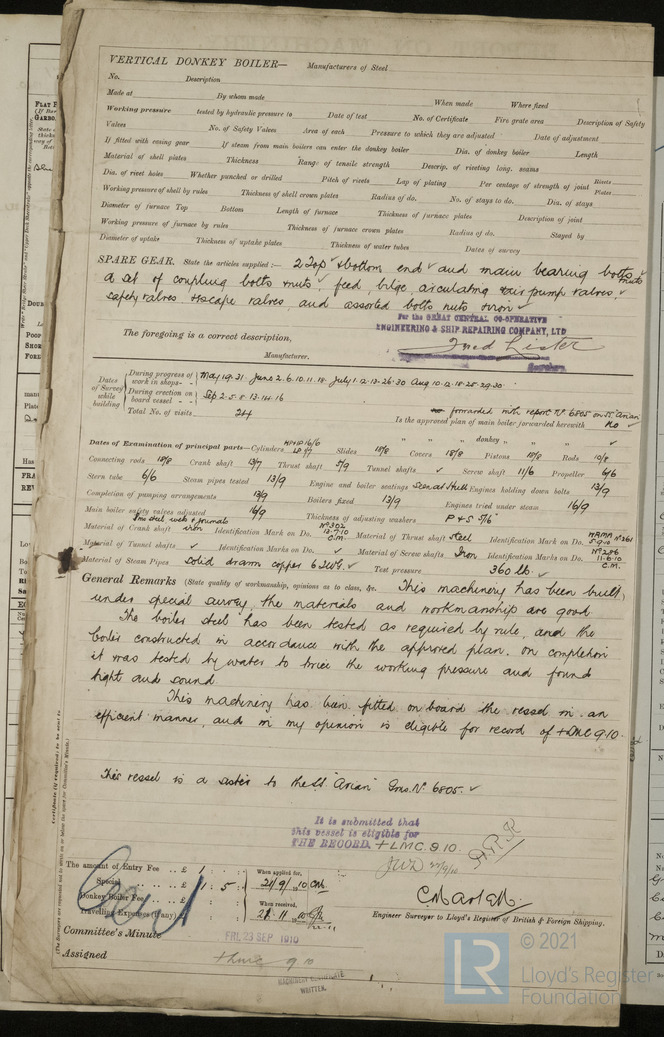 VERTICAL DONKEY BOILER— Manufacturers of Steel
No. Description
Made at By whom made When made Where fixed
Working pressure tested by hydraulic pressure to Date of test No. of Certificate Fire grate area Description of Safety
Valves No. of Safety Valves Area of each Pressure to which they are adjusted Date of adjustment
If fitted with easing gear If steam from main boilers can enter the donkey boiler Dia. of donkey boiler Length
Material of shell plates Thickness Range of tensile strength Descrip. of riveting long. seams
Dia. of rivet holes Whether punched or drilled Pitch of rivets Lap of plating Per centage of strength of joint Rivets Plates
Working pressure of shell by rules Thickness of shell crown plates Radius of do. No. of stays to do. Dia. of stays
Diameter of furnace Top Bottom Length of furnace Thickness of furnace plates Description of joint
Working pressure of furnace by rules Thickness of furnace crown plates Radius of do. Stayed by
Diameter of uptake Thickness of uptake plates Thickness of water tubes Dates of survey
SPARE GEAR. State the articles supplied:— 2 Top & bottom end ✓ and main bearing bolts & nuts
a set of coupling bolts & nuts ✓ feed, bilge, circulating & air pump valves. ✓
safety valves & escape valves, and assorted bolts nuts & iron ✓
For the GREAT CENTRAL CO-OPERATIVE
ENGINEERING & SHIP REPAIRING COMPANY, LTD
The foregoing is a correct description,
Fred Lister
Manufacturer.
Dates of Survey while building
During progress of work in shops - - May 19. 31. June 2. 6. 10. 11. 18. July 1. 12. 13. 26. 30 Aug 10. 12. 18. 25. 29. 30
During erection on board vessel - - Sep 2. 5. 8. 13. 14. 16
Total No. of visits 24
forwarded with report No 6805 on SS. Arian
Is the approved plan of main boiler forwarded herewith No ✓
" " " donkey " " ✓
Dates of Examination of principal parts—Cylinders Slides 18/8 Covers 18/8 Pistons 10/8 Rods 10/8
Connecting rods 18/8 Crank shaft 13/7 Thrust shaft 5/9 Tunnel shafts ✓ Screw shaft 11/6 Propeller 6/6
Stern tube 6/6 Steam pipes tested 13/9 Engine and boiler seatings Seen at Hull Engines holding down bolts 13/9
Completion of pumping arrangements 13/9 Boilers fixed 13/9 Engines tried under steam 16/9
Main boiler safety valves adjusted 16/9 Thickness of adjusting washers P & S 5/16
Material of Crank shaft Iron Identification Mark on Do. No 302 13.7.10 C.M. Material of Thrust shaft Steel Identification Mark on Do. No 261 5.9.10
Material of Tunnel shafts ✓ Identification Marks on Do. ✓ Material of Screw shafts Iron Identification Marks on Do. No 286 11.6.10 C.M.
Material of Steam Pipes solid drawn copper 6 IWG. ✓ Test pressure 360 lb ✓
General Remarks (State quality of workmanship, opinions as to class, &c. This machinery has been built
under special survey, the materials and workmanship are good
The boiler steel has been tested as required by rule, and the
boiler constructed in accordance with the approved plan. On completion
it was tested by water to twice the working pressure and found
tight and sound.
This machinery has been fitted on board the vessel in an
efficient manner, and in my opinion is eligible for record of +LMC 9.10.
This vessel is a sister to the SS "Arian" Gms. No 6805. ✓
It is submitted that
this vessel is eligible for
THE RECORD. + LMC. 9.10.
The amount of Entry Fee .. £ 1 : :
Special .. £ : 5 :
Donkey Boiler Fee .. £ : :
Travelling Expenses (if any) £ : :
When applied for, 21/9/10
When received, 21.11.10
Engineer Surveyor to Lloyd's Register of British & Foreign Shipping.
Committee's Minute FRI. 23 SEP 1910
Assigned + LMC 9.10
MACHINERY CERTIFICATE
WRITTEN.
LR
© 2021
Lloyd's Register
Foundation